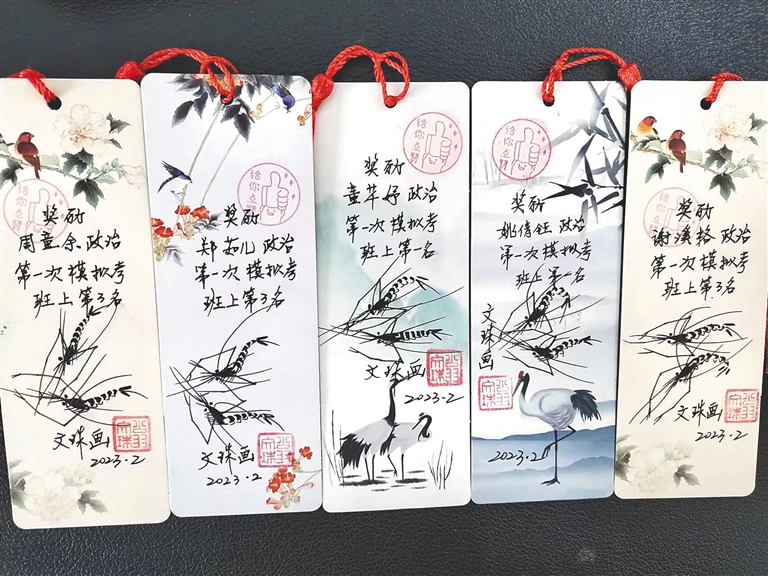 给你点赞
奖励
政治
第一次模拟考
班上第3名
文珠画
2023.2
给你点赞
奖励
郑茹儿 政治
第一次模拟考
班上第3名
文珠画
2023.2
给你点赞
奖励
童芊妤 政治
第一次模拟考
班上第一名
文珠画
2023.2
给你点赞
奖励
姚倩钰 政治
第一次模拟考
班上第一名
文珠画
2023.2
给你点赞
奖励
政治
第一次模拟考
班上第3名
文珠画
2023.2